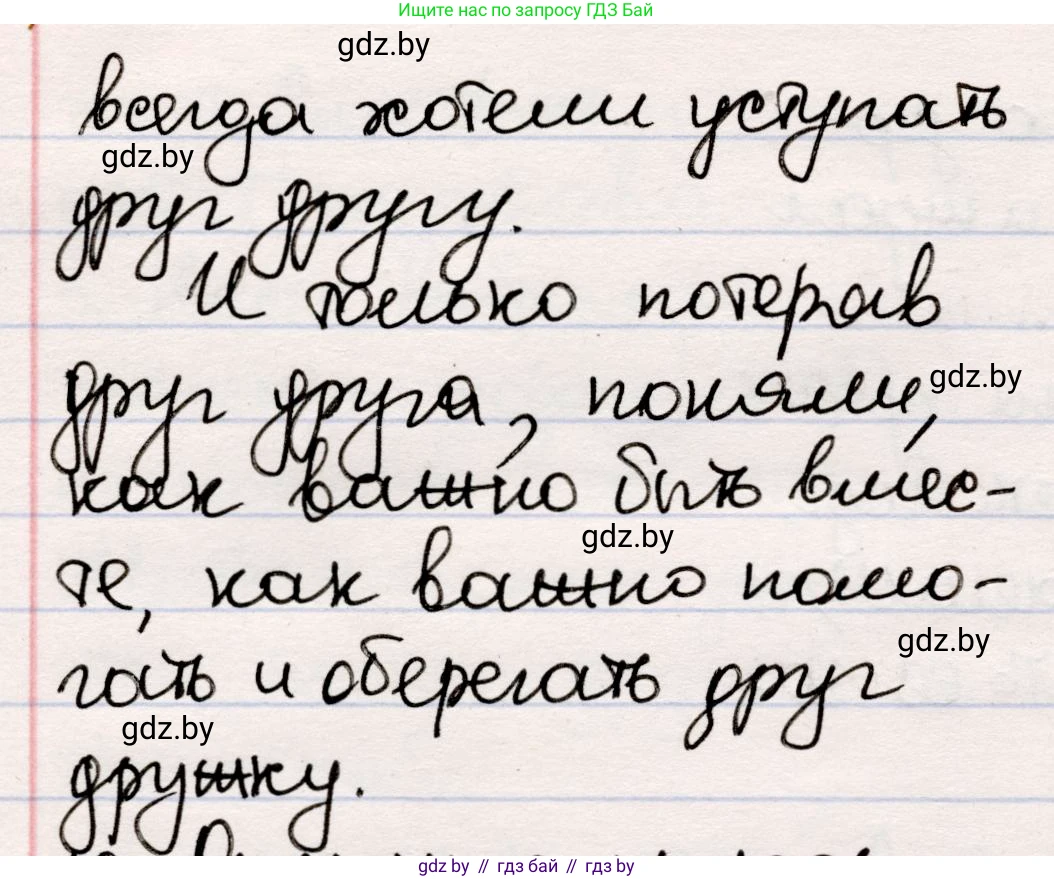 Ищите нас по запросу ГДЗ Бай
gdz.by
всегда хотели уступать
gdz.by
друг другу.
И только потеряв
друг друга, поняли,
gdz.by
как важно быть вмес-
gdz.by
те, как важно помо-
gdz.by
гать и оберегать друг
gdz.by
дружку.
gdz.by // гдз бай // гдз by